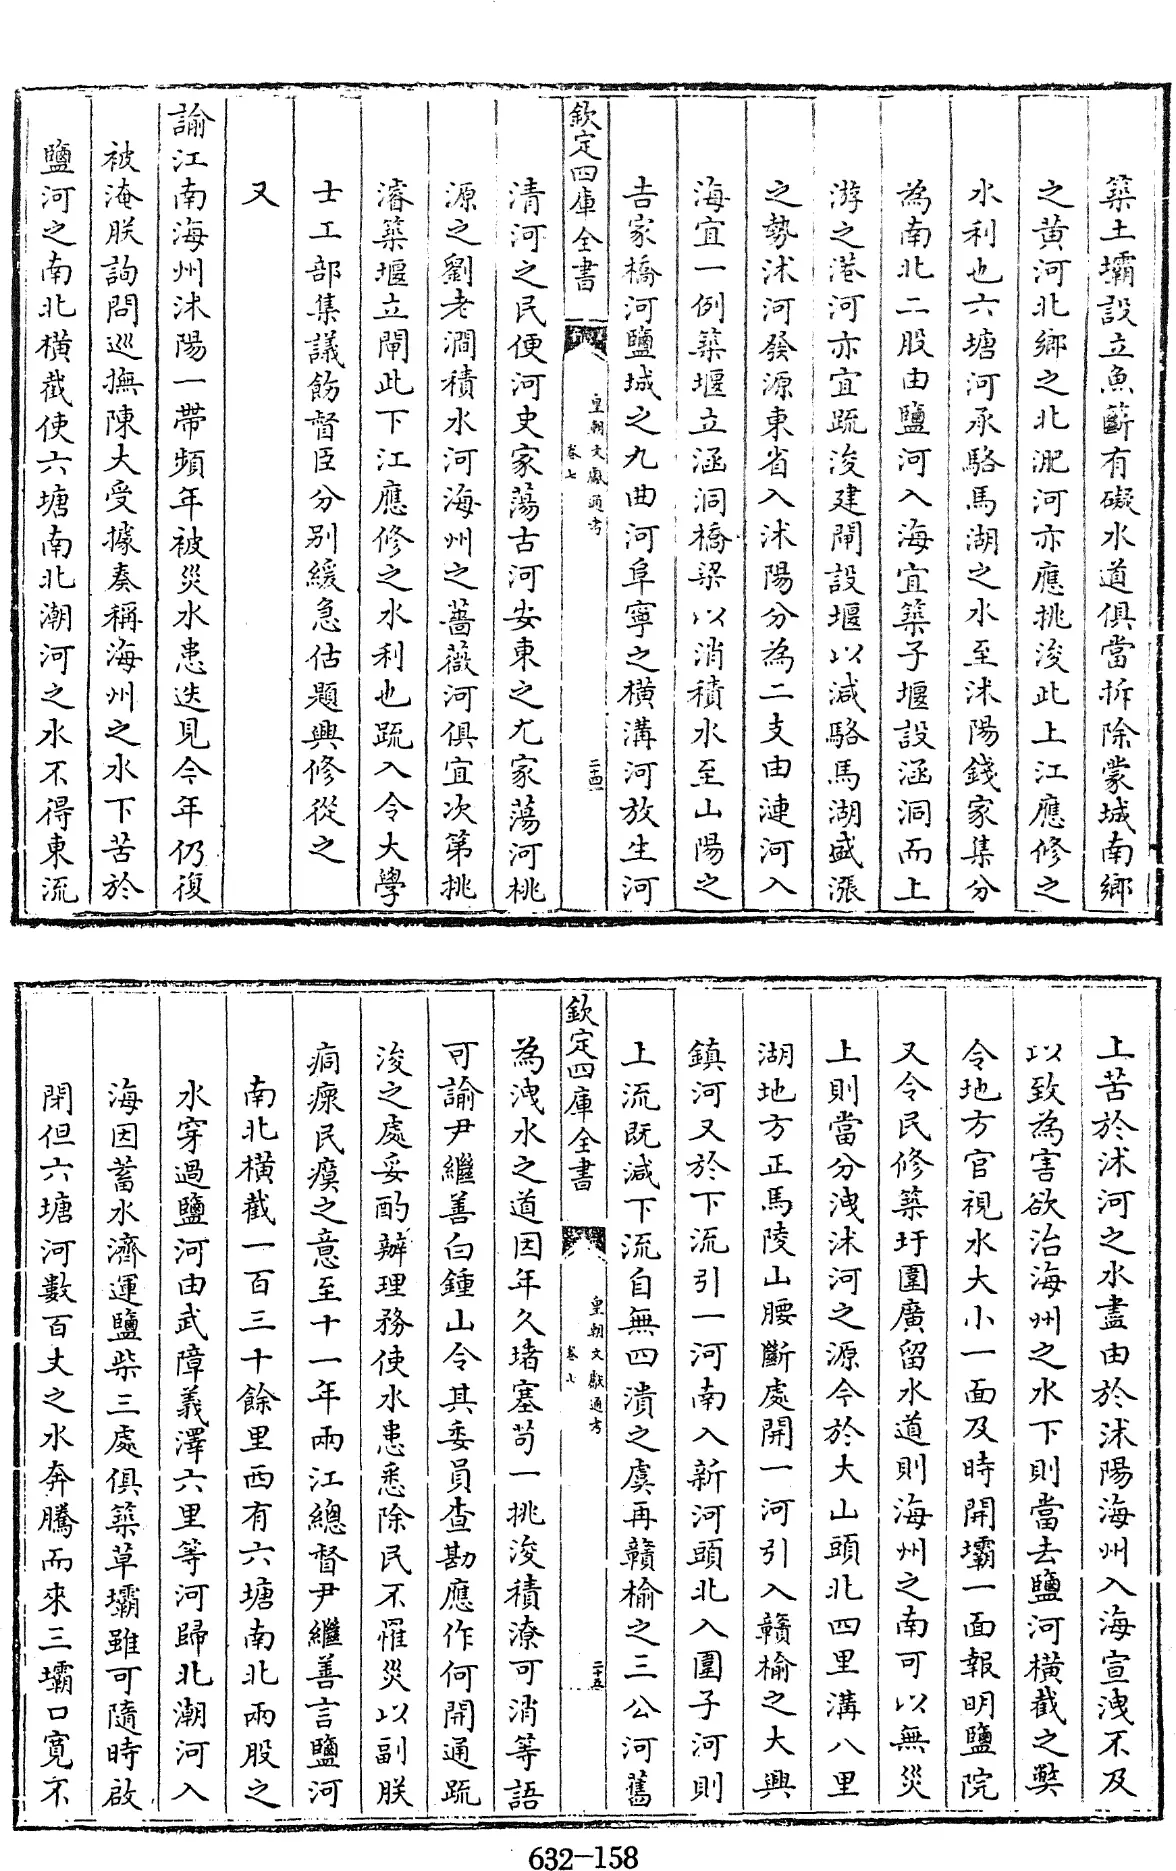 築土壩設立魚籪有礙水道俱當拆除蒙城南鄉
之黃河北鄉之北淝河亦應挑浚此上江應修之
水利也六塘河承駱馬湖之水至沭陽錢家集分
為南北二股由鹽河入海宜築子堰設涵洞而上
游之港河亦宜疏浚建閘設堰以減駱馬湖盛漲
之勢沭河發源東省入沭陽分為二支由漣河入
海宜一例築堰立涵洞橋梁以消積水至山陽之
吉家橋河鹽城之九曲河阜寧之橫溝河放生河
欽定四庫全書
皇朝文獻通考
卷七
二十四
清河之民便河史家蕩古河安東之尤家蕩河桃
源之劉老澗積水河海州之薔薇河俱宜次第挑
濬築堰立閘此下江應修之水利也疏入令大學
士工部集議飭督臣分別緩急估題興修從之
又
諭江南海州沭陽一帶頻年被災水患迭見今年仍復
被淹朕詢問巡撫陳大受據奏稱海州之水下苦於
鹽河之南北橫截使六塘南北潮河之水不得東流
上苦於沭河之水盡由於沭陽海州入海宣洩不及
以致為害欲治海州之水下則當去鹽河橫截之獘
令地方官視水大小一面及時開壩一面報明鹽院
又令民修築圩圍廣留水道則海州之南可以無災
上則當分洩沭河之源今於大山頭北四里溝八里
湖地方正馬陵山腰斷處開一河引入贛榆之大興
鎮河又於下流引一河南入新河頭北入圍子河則
上流既減下流自無四潰之虞再贛榆之三公河舊
欽定四庫全書
皇朝文獻通考
卷七
二十五
為洩水之道因年久堵塞苟一挑浚積潦可消等語
可諭尹繼善白鍾山令其委員查勘應作何開通疏
浚之處妥酌辦理務使水患悉除民不罹災以副朕
痌瘝民瘼之意至十一年兩江總督尹繼善言鹽河
南北橫截一百三十餘里西有六塘南北兩股之
水穿過鹽河由武障義澤六里等河歸北潮河入
海因蓄水濟運鹽柴三處俱築草壩雖可隨時啟
閉但六塘河數百丈之水奔騰而來三壩口寬不
632-158